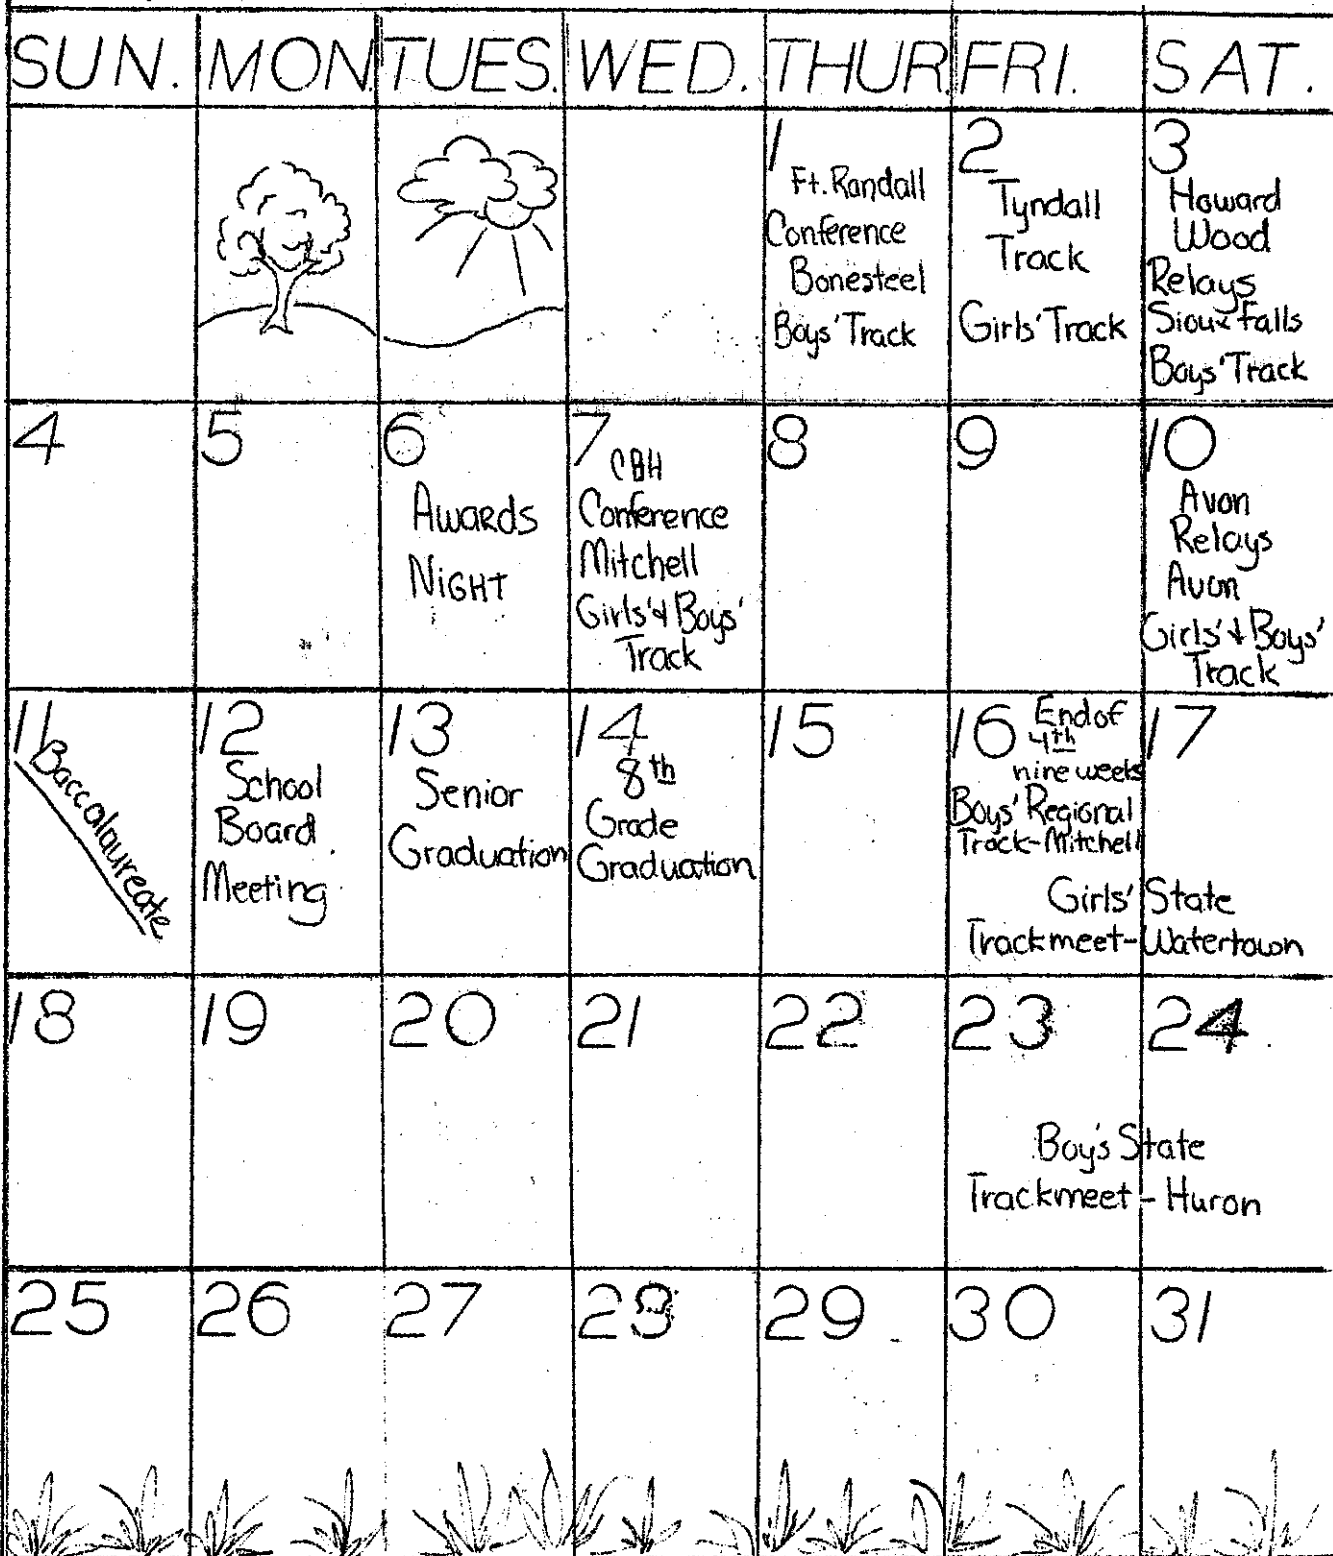 SUN. MON. TUES. WED. THUR. FRI. SAT.
1
Ft. Randall
Conference
Bonesteel
Boys' Track
2
Tyndall
Track
Girls' Track
3
Howard
Wood
Relays
Sioux Falls
Boys' Track
4
5
6
Awards
Night
7
CBH
Conference
Mitchell
Girls' & Boys'
Track
8
9
10
Avon
Relays
Avon
Girls' & Boys'
Track
11
Baccalaureate
12
School
Board
Meeting
13
Senior
Graduation
14
8th
Grade
Graduation
15
16 End of
4th
nine weeks
Boys' Regional
Track-Mitchell
17
Girls' State
Trackmeet-Watertown
18
19
20
21
22
23
24
Boy's State
Trackmeet - Huron
25
26
27
28
29
30
31